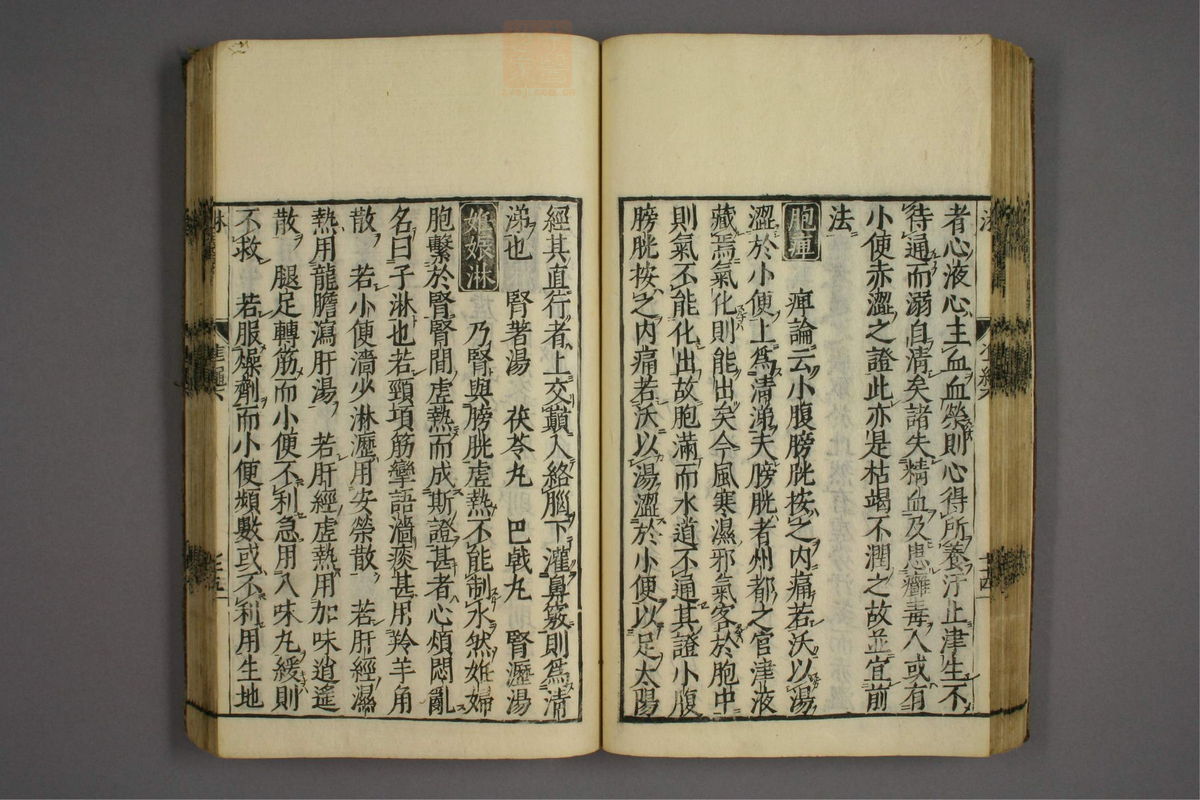 者心液心主血血榮則心得所養汙止津生不
待通而溺自清矣諸失精血及患癰毒人或有
小便赤澀之證此亦是枯竭不潤之故並宜前
法
胞痺 痺論云小腹膀胱按之内痛若沃以湯
澀於小便上爲清涕夫膀胱者州都之官津液
藏焉氣化則能出矣今風寒濕邪氣客於胞中
則氣不能化出故胞滿而水道不通其證小腹
膀胱按之内痛若沃以湯澀於小便以足太陽
經其直行者上交巔入絡腦下灌鼻竅則爲清
涕也 腎著湯 茯苓丸 巴戟丸 腎瀝湯
姙娠淋 乃腎與膀胱虛熱不能制水然姙婦
胞繫於腎腎間虛熱而成斯證甚者心煩悶亂
名曰子淋也若頸項筋攣語澀痰甚用羚羊角
散 若小便濇少淋瀝用安榮散 若肝經濕
熱用龍膽瀉肝湯 若肝經虛熱用加味逍遥
散 腿足轉筋而小便不利急用八味丸緩則
不救 若服燥劑而小便頻數或不利用生地